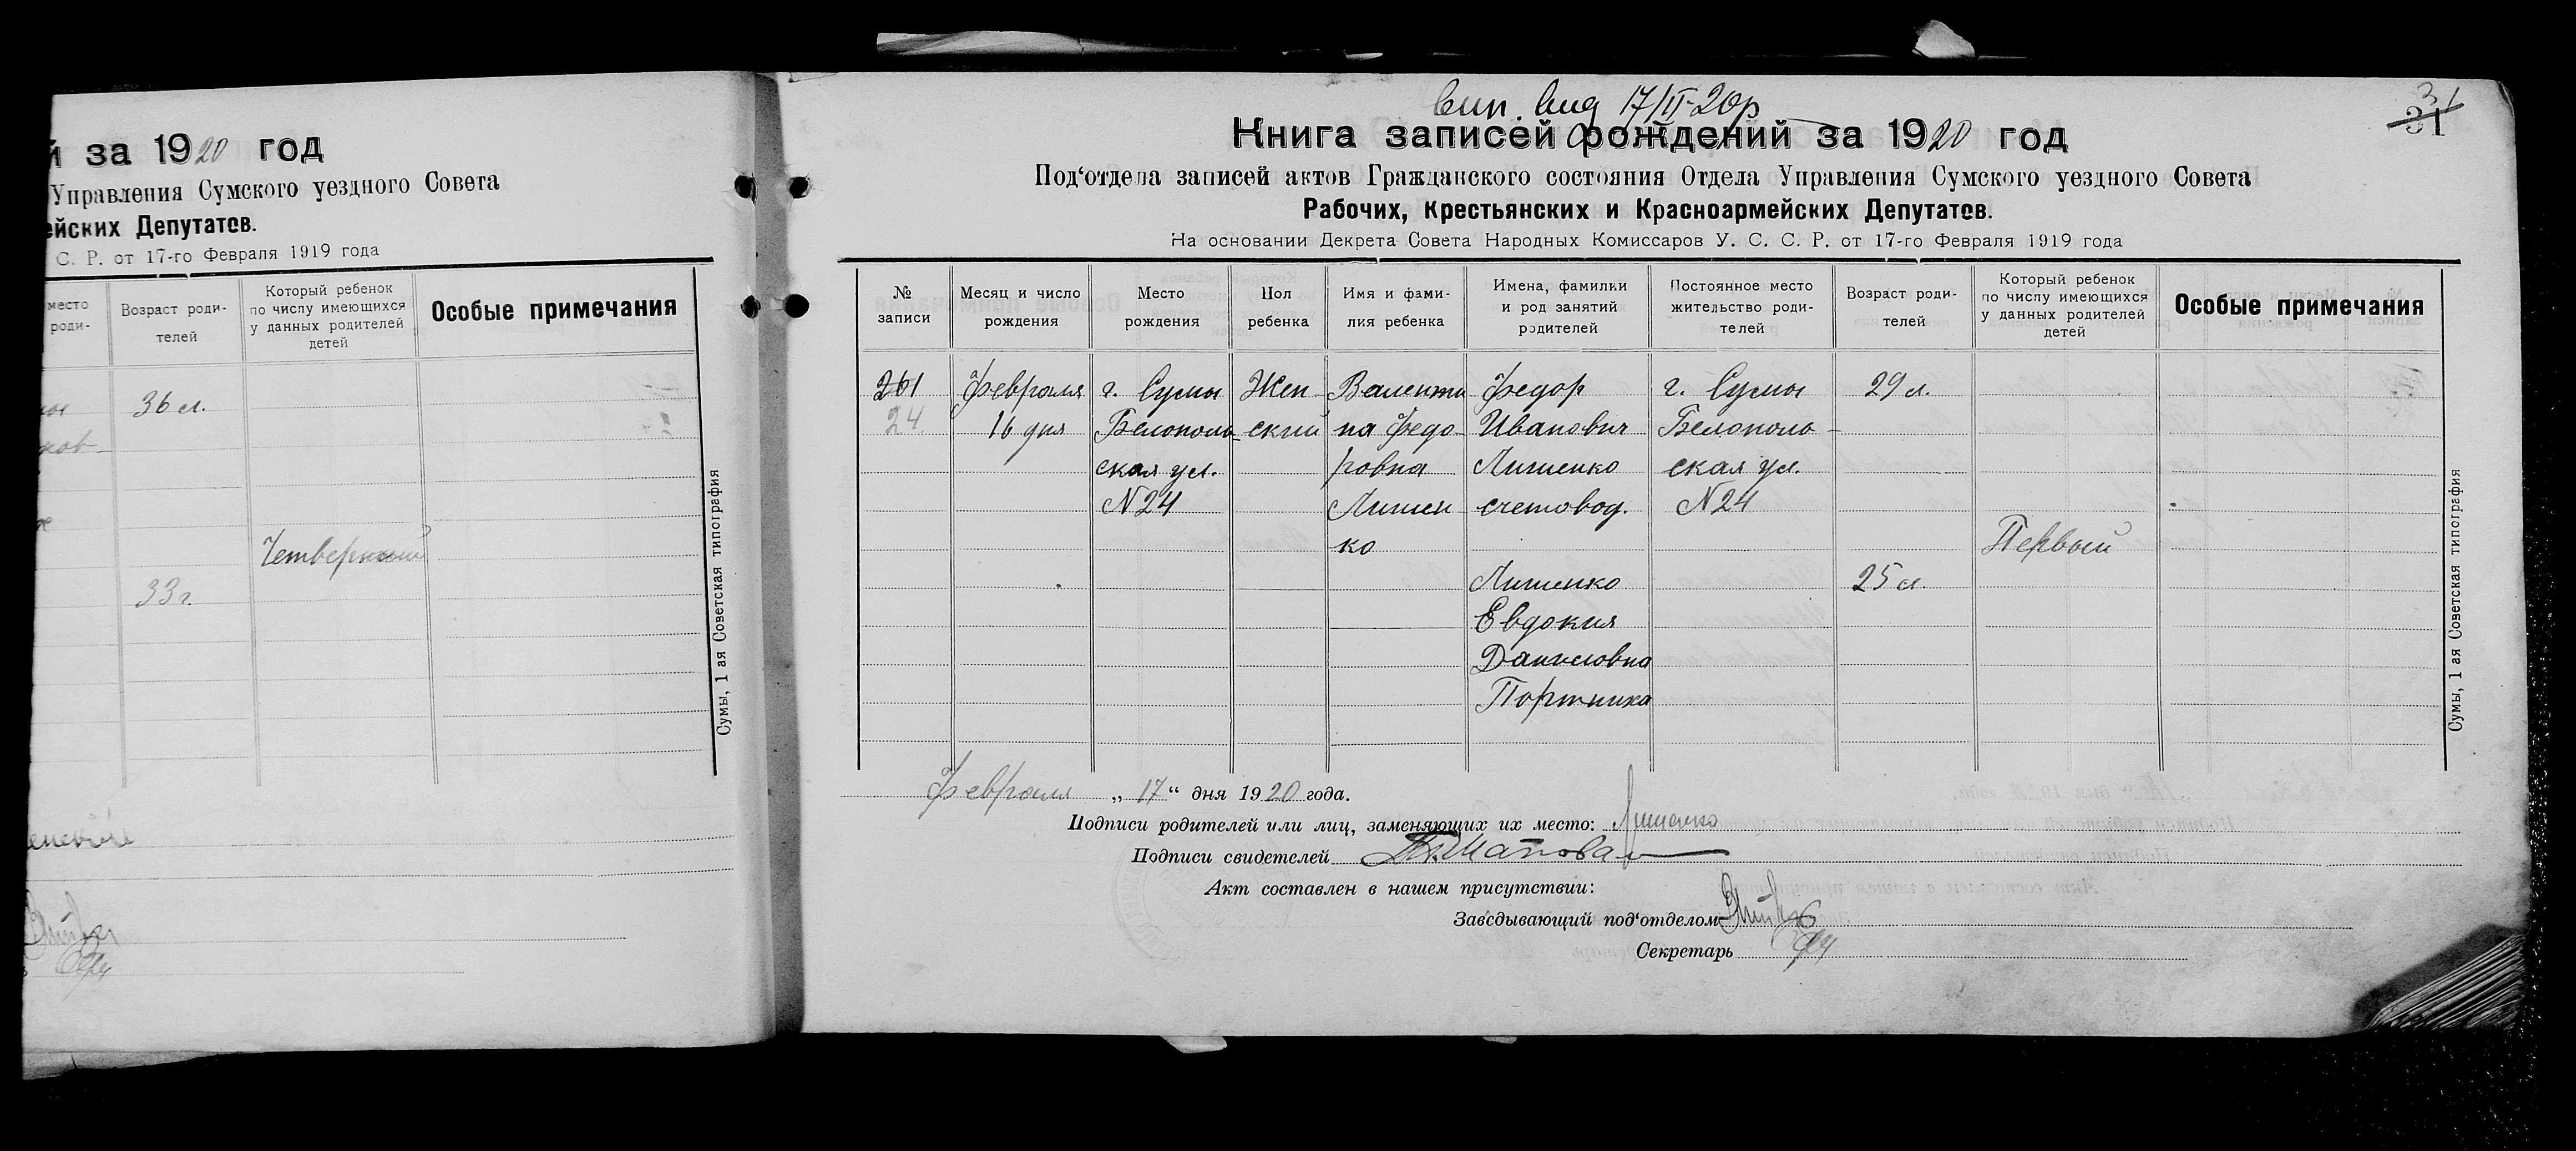 й за 1920 год
Управления Сумского уездного Совета
ейских Депутатов.
С. Р. от 17-го Февраля 1919 года
место роди-
Возраст роди-
телей
Который ребенок
по числу имеющихся
у данных родителей
детей
Особые примечания
36 л.
Четвертый
33 г.
Сумы, 1 ая Советская типография
вып. вид 17/II-20р
31
31
Книга записей рождений за 1920 год
Под‘отдела записей актов Гражданского состояния Отдела Управления Сумского уездного Совета
Рабочих, Крестьянских и Красноармейских Депутатов.
На основании Декрета Совета Народных Комиссаров У. С. С. Р. от 17-го Февраля 1919 года
№
записи
Месяц и число
рождения
Место
рождения
Пол
ребенка
Имя и фами-
лия ребенка
Имена, фамилии
и род занятий
родителей
Постоянное место
жительство роди-
телей
Возраст роди-
телей
Который ребенок
по числу имеющихся
у данных родителей
детей
Особые примечания
261
24.
Февраля
16 дня
г. Сумы
Белополь-
ская ул.
N 24
Жен-
ский
Валенти-
на Федо-
ровна
Лишен-
ко
Федор
Иванович
Лишенко
счетовод.
Лишенко
Евдокия
Даниловна
Портниха
г. Сумы
Белополь-
ская ул.
N 24
29 л.
25 л.
Первый
Сумы, 1 ая Советская типография
Февраля „17“ дня 1920 года.
Подписи родителей или лиц, заменяющих их место: Лишенко
Подписи свидетелей Шаповал
Акт составлен в нашем присутствии:
Заведывающий под‘отделом
Секретарь